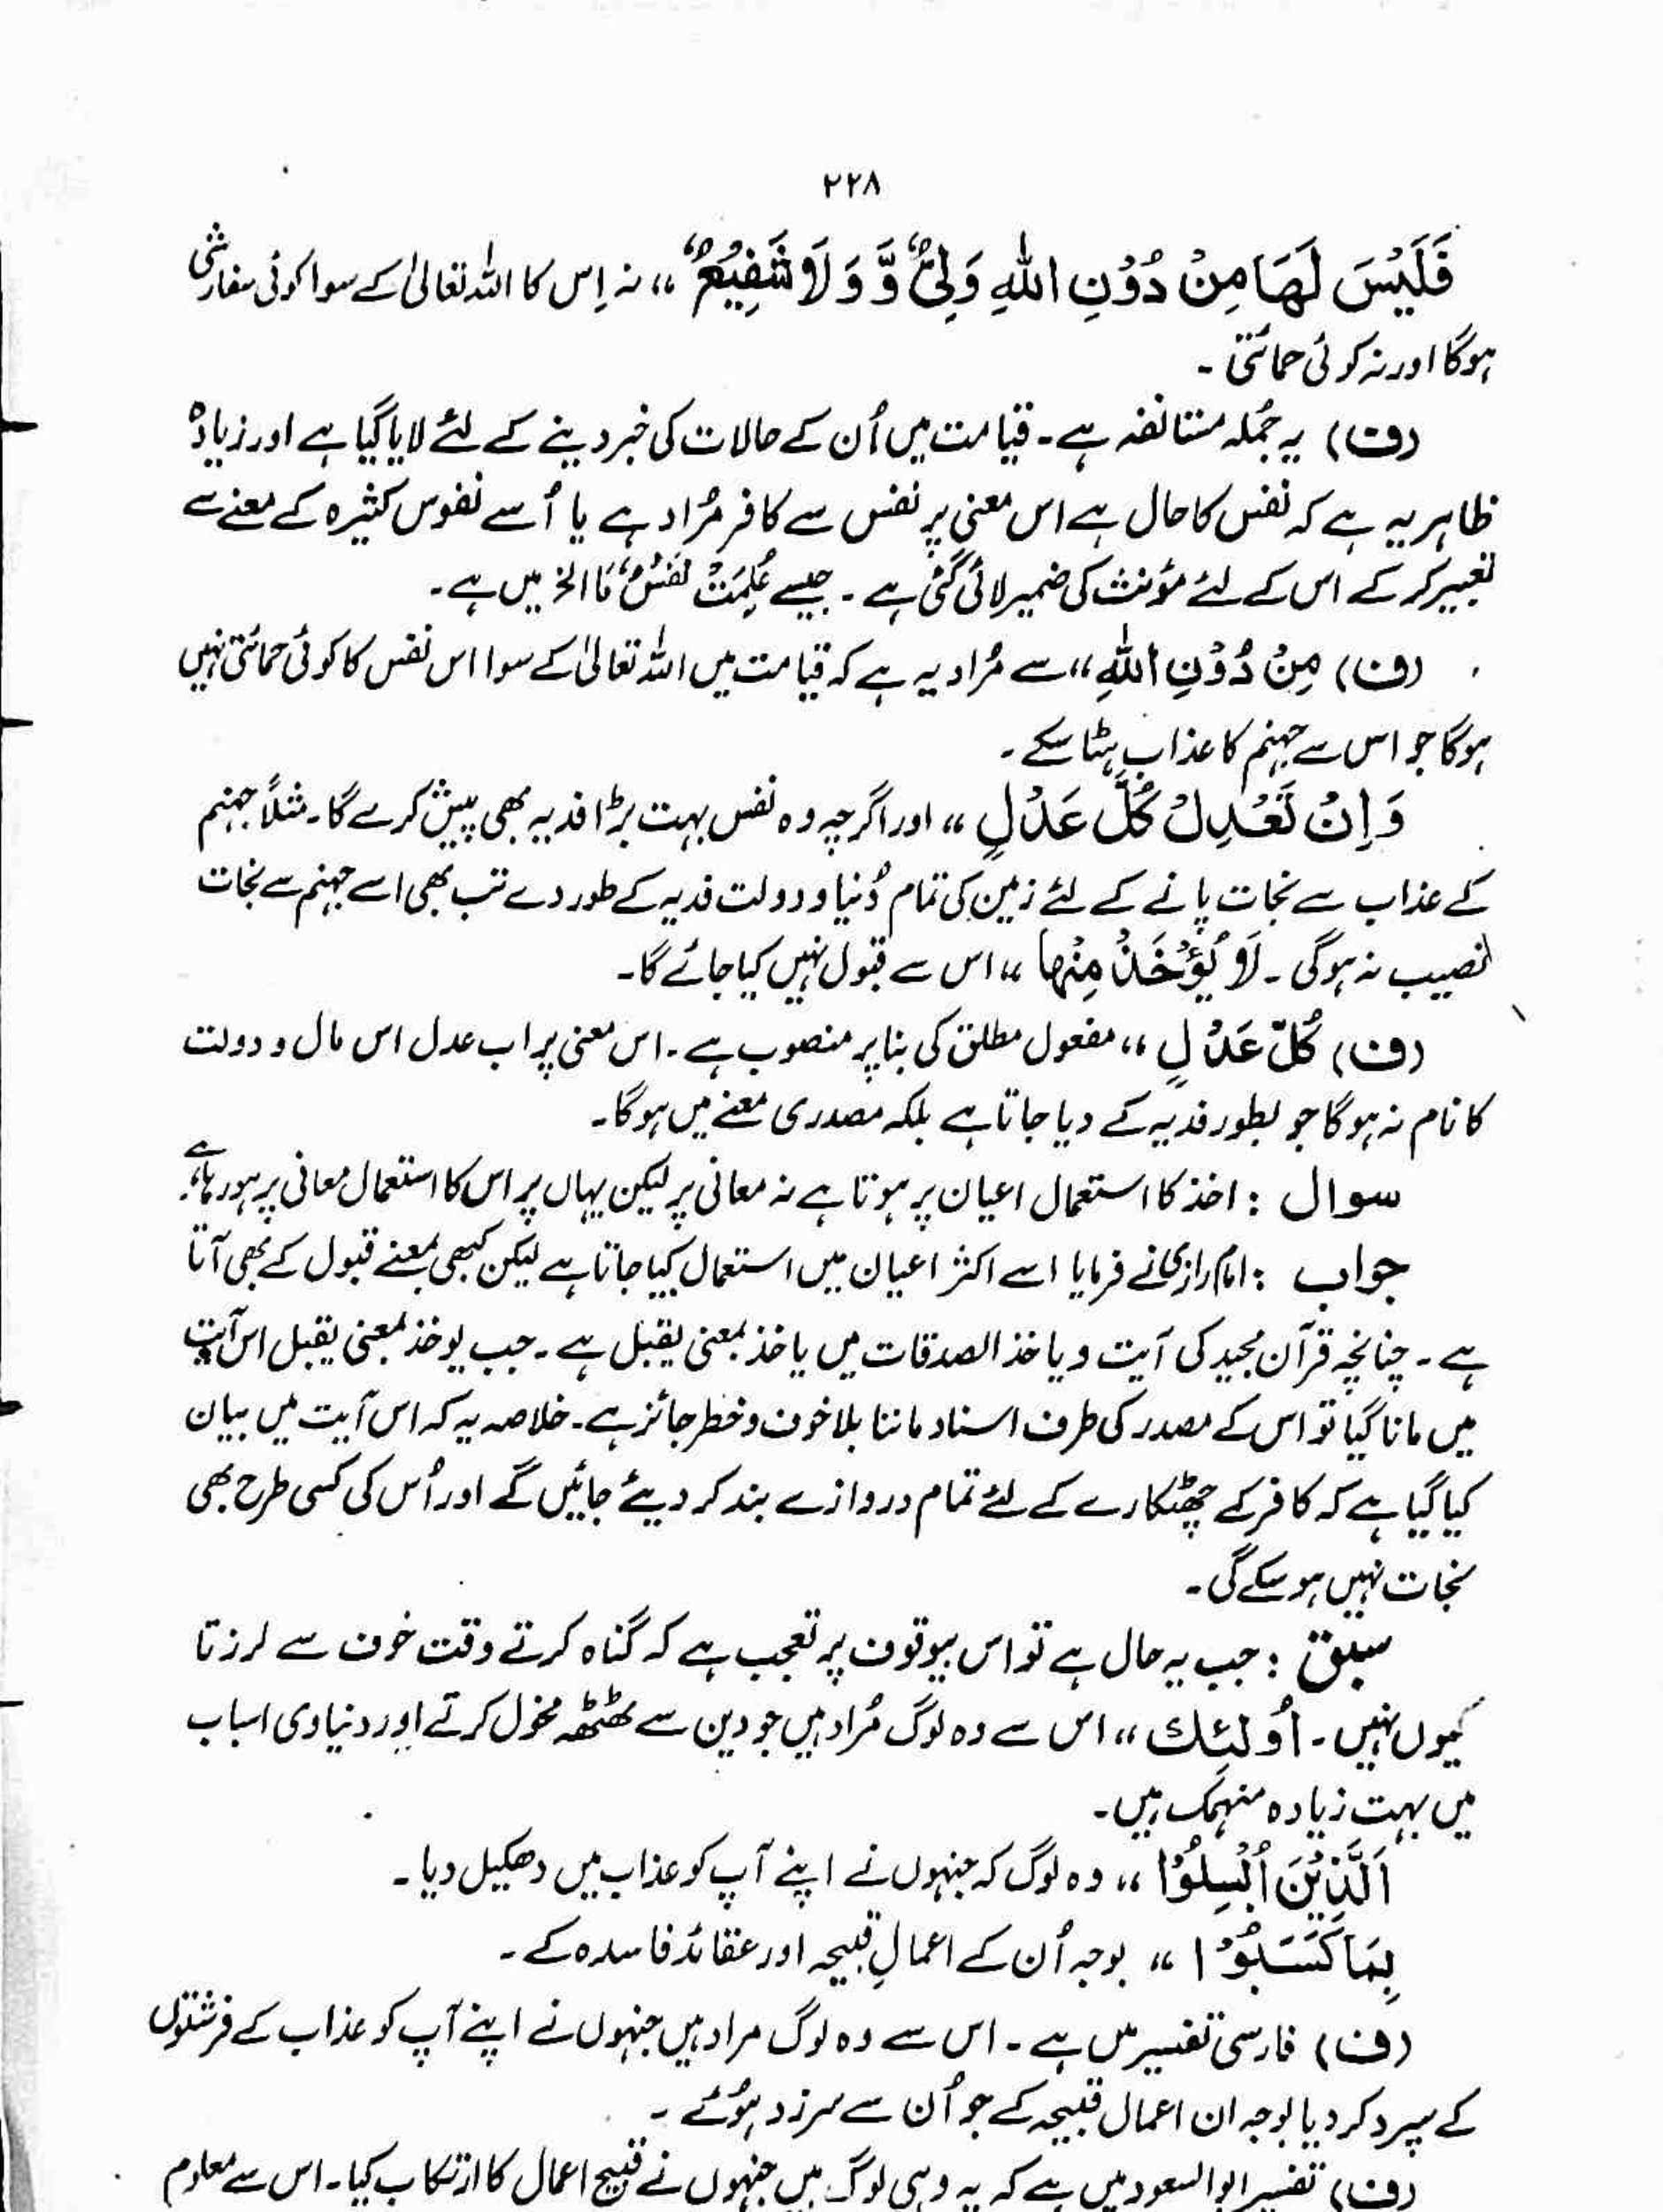 ۲۲۸
فَلَيْسَ لَهَا مِنْ دُوْنِ اللهِ وَلِیٌّ وَّ وَ لَا شَفِیْعٌ ،، نہ اِس کا اللہ تعالیٰ کے سوا کوئی سفارشی
ہوگا اور نہ کوئی حمائتی ۔
(ف) یہ جُملہ مستانفہ ہے ۔ قیامت میں اُن کے حالات کی خبر دینے کے لئے لایا گیا ہے اور زیادہ
ظاہر یہ ہے کہ نفس کا حال ہے اس معنی پر نفس سے کافر مُراد ہے یا اُسے نفوس کثیرہ کے معنے سے
تعبیر کر کے اس کے لئے مؤنث کی ضمیر لائی گئی ہے ۔ جیسے عُلِمَتْ نَفْسٌ مَا الخ میں ہے ۔
(ف) مِنْ دُوْنِ اللهِ ،، سے مُراد یہ ہے کہ قیامت میں اللہ تعالیٰ کے سوا اس نفس کا کوئی حمائتی نہیں
ہوگا جو اس سے جہنم کا عذاب ہٹا سکے ۔
وَ اِنْ تَعْدِلْ كُلَّ عَدْلٍ ،، اور اگرچہ وہ نفس بہت بڑا فدیہ بھی پیش کرے گا ۔ مثلاً جہنم
کے عذاب سے نجات پانے کے لئے زمین کی تمام دُنیا و دولت فدیہ کے طور دے تب بھی اسے جہنم سے نجات
نصیب نہ ہوگی ۔ لَا یُؤْخَذْ مِنْها ،، اس سے قبول نہیں کیا جائے گا ۔
(ف) كُلَّ عَدْلٍ ،، مفعول مطلق کی بنا پر منصوب ہے ۔ اس معنی پر اب عدل اس مال و دولت
کا نام نہ ہوگا جو بطور فدیہ کے دیا جاتا ہے بلکہ مصدری معنے میں ہوگا ۔
سوال : اخذ کا استعمال اعیان پر ہوتا ہے نہ معانی پر لیکن یہاں پر اس کا استعمال معانی پر ہو رہا ہے ۔
جواب : امام رازی نے فرمایا اسے اکثر اعیان میں استعمال کیا جاتا ہے لیکن کبھی بمعنے قبول کے بھی آتا
ہے ۔ چنانچہ قرآن مجید کی آیت و یاخذ الصدقات میں یاخذ بمعنی یقبل ہے ۔ جب یوخذ بمعنی یقبل اس آیت
میں مانا گیا تو اس کے مصدر کی طرف اسناد ماننا بلا خوف و خطر جائز ہے ۔ خلاصہ یہ کہ اس آیت میں بیان
کیا گیا ہے کہ کافر کے چھٹکارے کے لئے تمام دروازے بند کر دیئے جائیں گے اور اُس کی کسی طرح بھی
نجات نہیں ہو سکے گی ۔
سبق : جب یہ حال ہے تو اس بیوقوف پر تعجب ہے کہ گناہ کرتے وقت خوف سے لرزتا
کیوں نہیں ۔ اُولٰئِك ،، اس سے وہ لوگ مُراد ہیں جو دین سے ٹھٹھہ مخول کرتے اور دنیاوی اسباب
میں بہت زیادہ منہمک ہیں ۔
اَلَّذِیْنَ اُبْسِلُوْا ،، وہ لوگ کہ جنہوں نے اپنے آپ کو عذاب میں دھکیل دیا ۔
بِمَا كَسَبُوْا ،، بوجہ اُن کے اعمالِ قبیحہ اور عقائد فاسدہ کے ۔
(ف) فارسی تفسیر میں ہے ۔ اس سے وہ لوگ مراد ہیں جنہوں نے اپنے آپ کو عذاب کے فرشتوں
کے سپرد کر دیا بوجہ ان اعمال قبیحہ کے جو اُن سے سرزد ہوئے ۔
(ف) تفسیر ابوالسعود میں ہے کہ یہ وہی لوگ ہیں جنہوں نے قبیح اعمال کا ارتکاب کیا ۔ اس سے معلوم